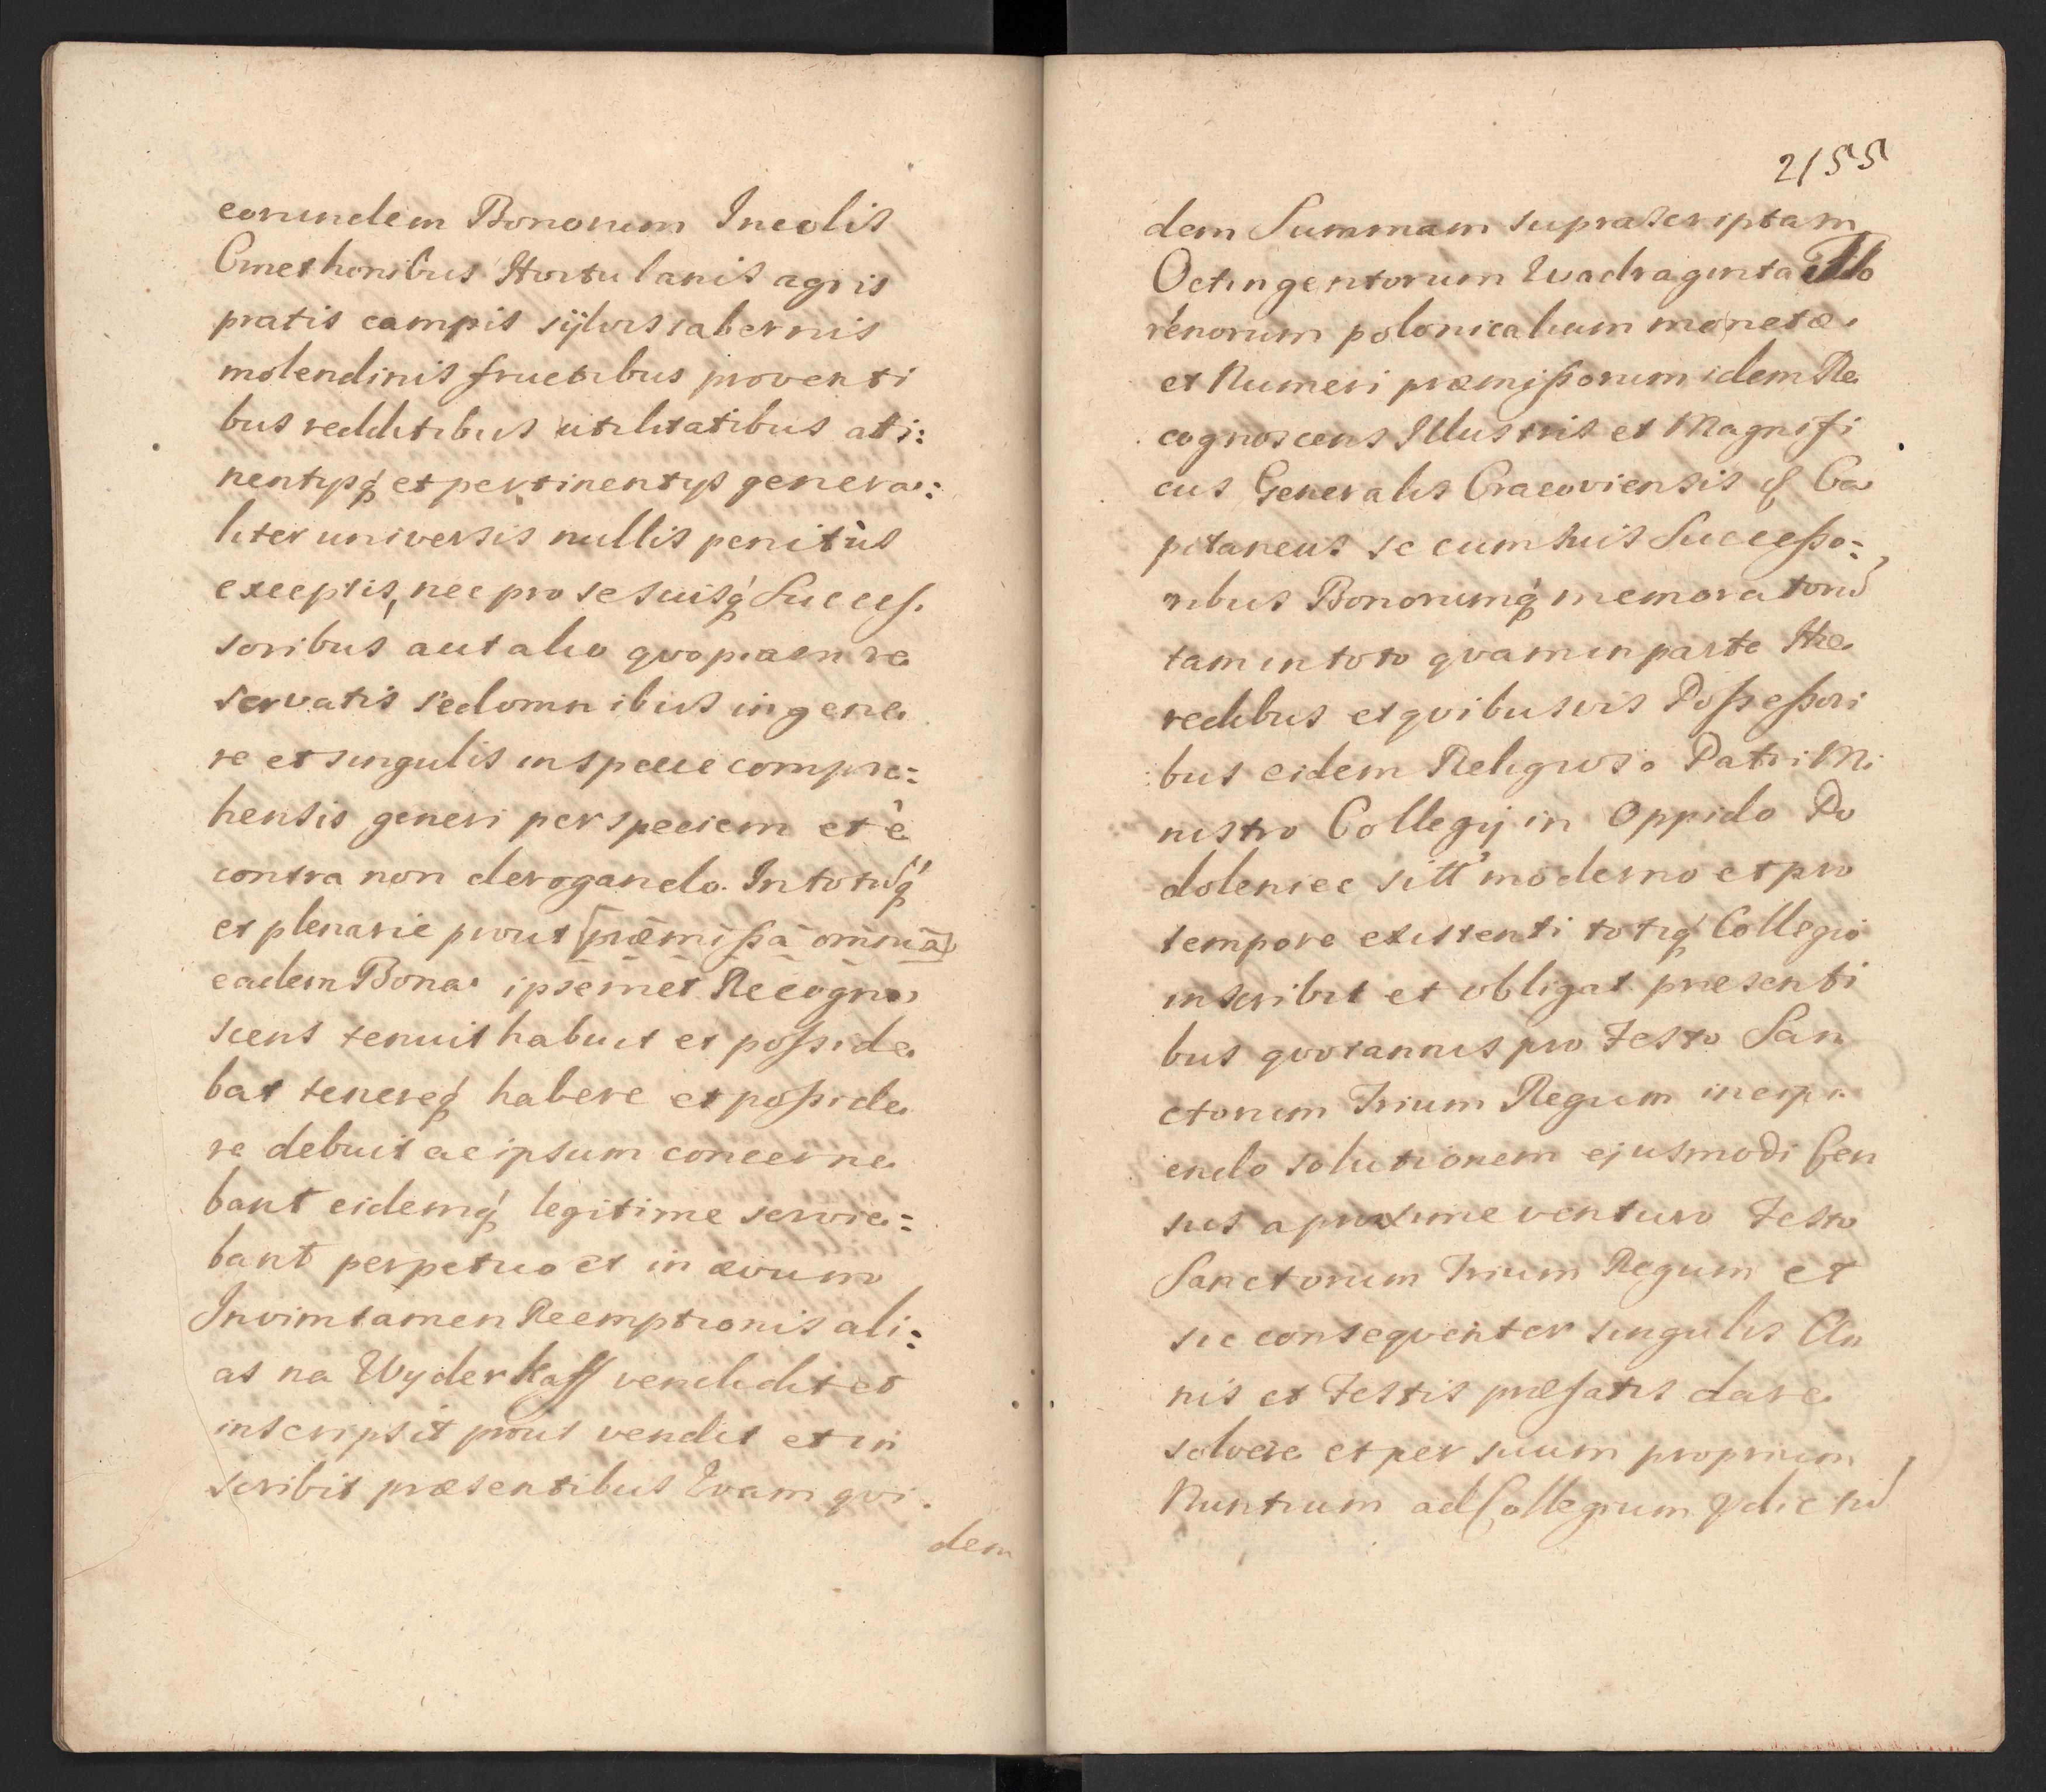 eorundem Bonorum Incolis
Cmethonibus Hortulanis agris
pratis campis sÿlvis tabernis
molendinis fructibus proventi
bus redditibus utilitatibus atti:
nentysq́ et pertinentys genera:
liter universis nullis penitùs
exceptis, nec pro se suisq́ Succes.
soribus aut alio qvopiam re
servatis sed omnibus in gene
re et singulis in specie compre:
hensis generi per speciem et è
contra non derogando. In totuq́
et plenarie prout præmissa omnia
eadem Bona ipsemet Recogno
scens tenuit habuit et posside
bat tenereq́ habere et posside
re debuit ac ipsum concerne
bant eidemq́ legitime servie:
bant perpetuo et in ævum
In vim tamen Reemptionis ali:
as na Wyderkaff vendidit et
inscripsit prout vendit et in
scribit præsentibus Qvam qvi.
dem
2155
dem Summam suprascriptam
Octingentorum Qvadraginta Flo
renorum polonicalium monetæ
et Numeri præmissorum idem Re
cognoscens Illustris et Magnifi
cus Generalis Cracoviensis Ca
pitaneus se cum suis Successo:
ribus Bonorumq́ memorator
tam in toto qvam in parte Hæ
redibus et qvibusvis Possessori
bus eidem Religioso Patri Mi
nistro Collegij in Oppido Po
doleniec sitt moderno et pro
tempore existenti totiq́ Collegio
inscribit et obligat præsenti
bus qvotannis pro Festo San
ctorum Trium Regum incipi
endo solutionem ejusmodi Cen
sus a proxime venturo Festo
Sanctorum Trium Regum et
sic conseqventer singulis An
nis et Festis præfatis dare
solvere et per suum proprium
Nuntium ad Collegium